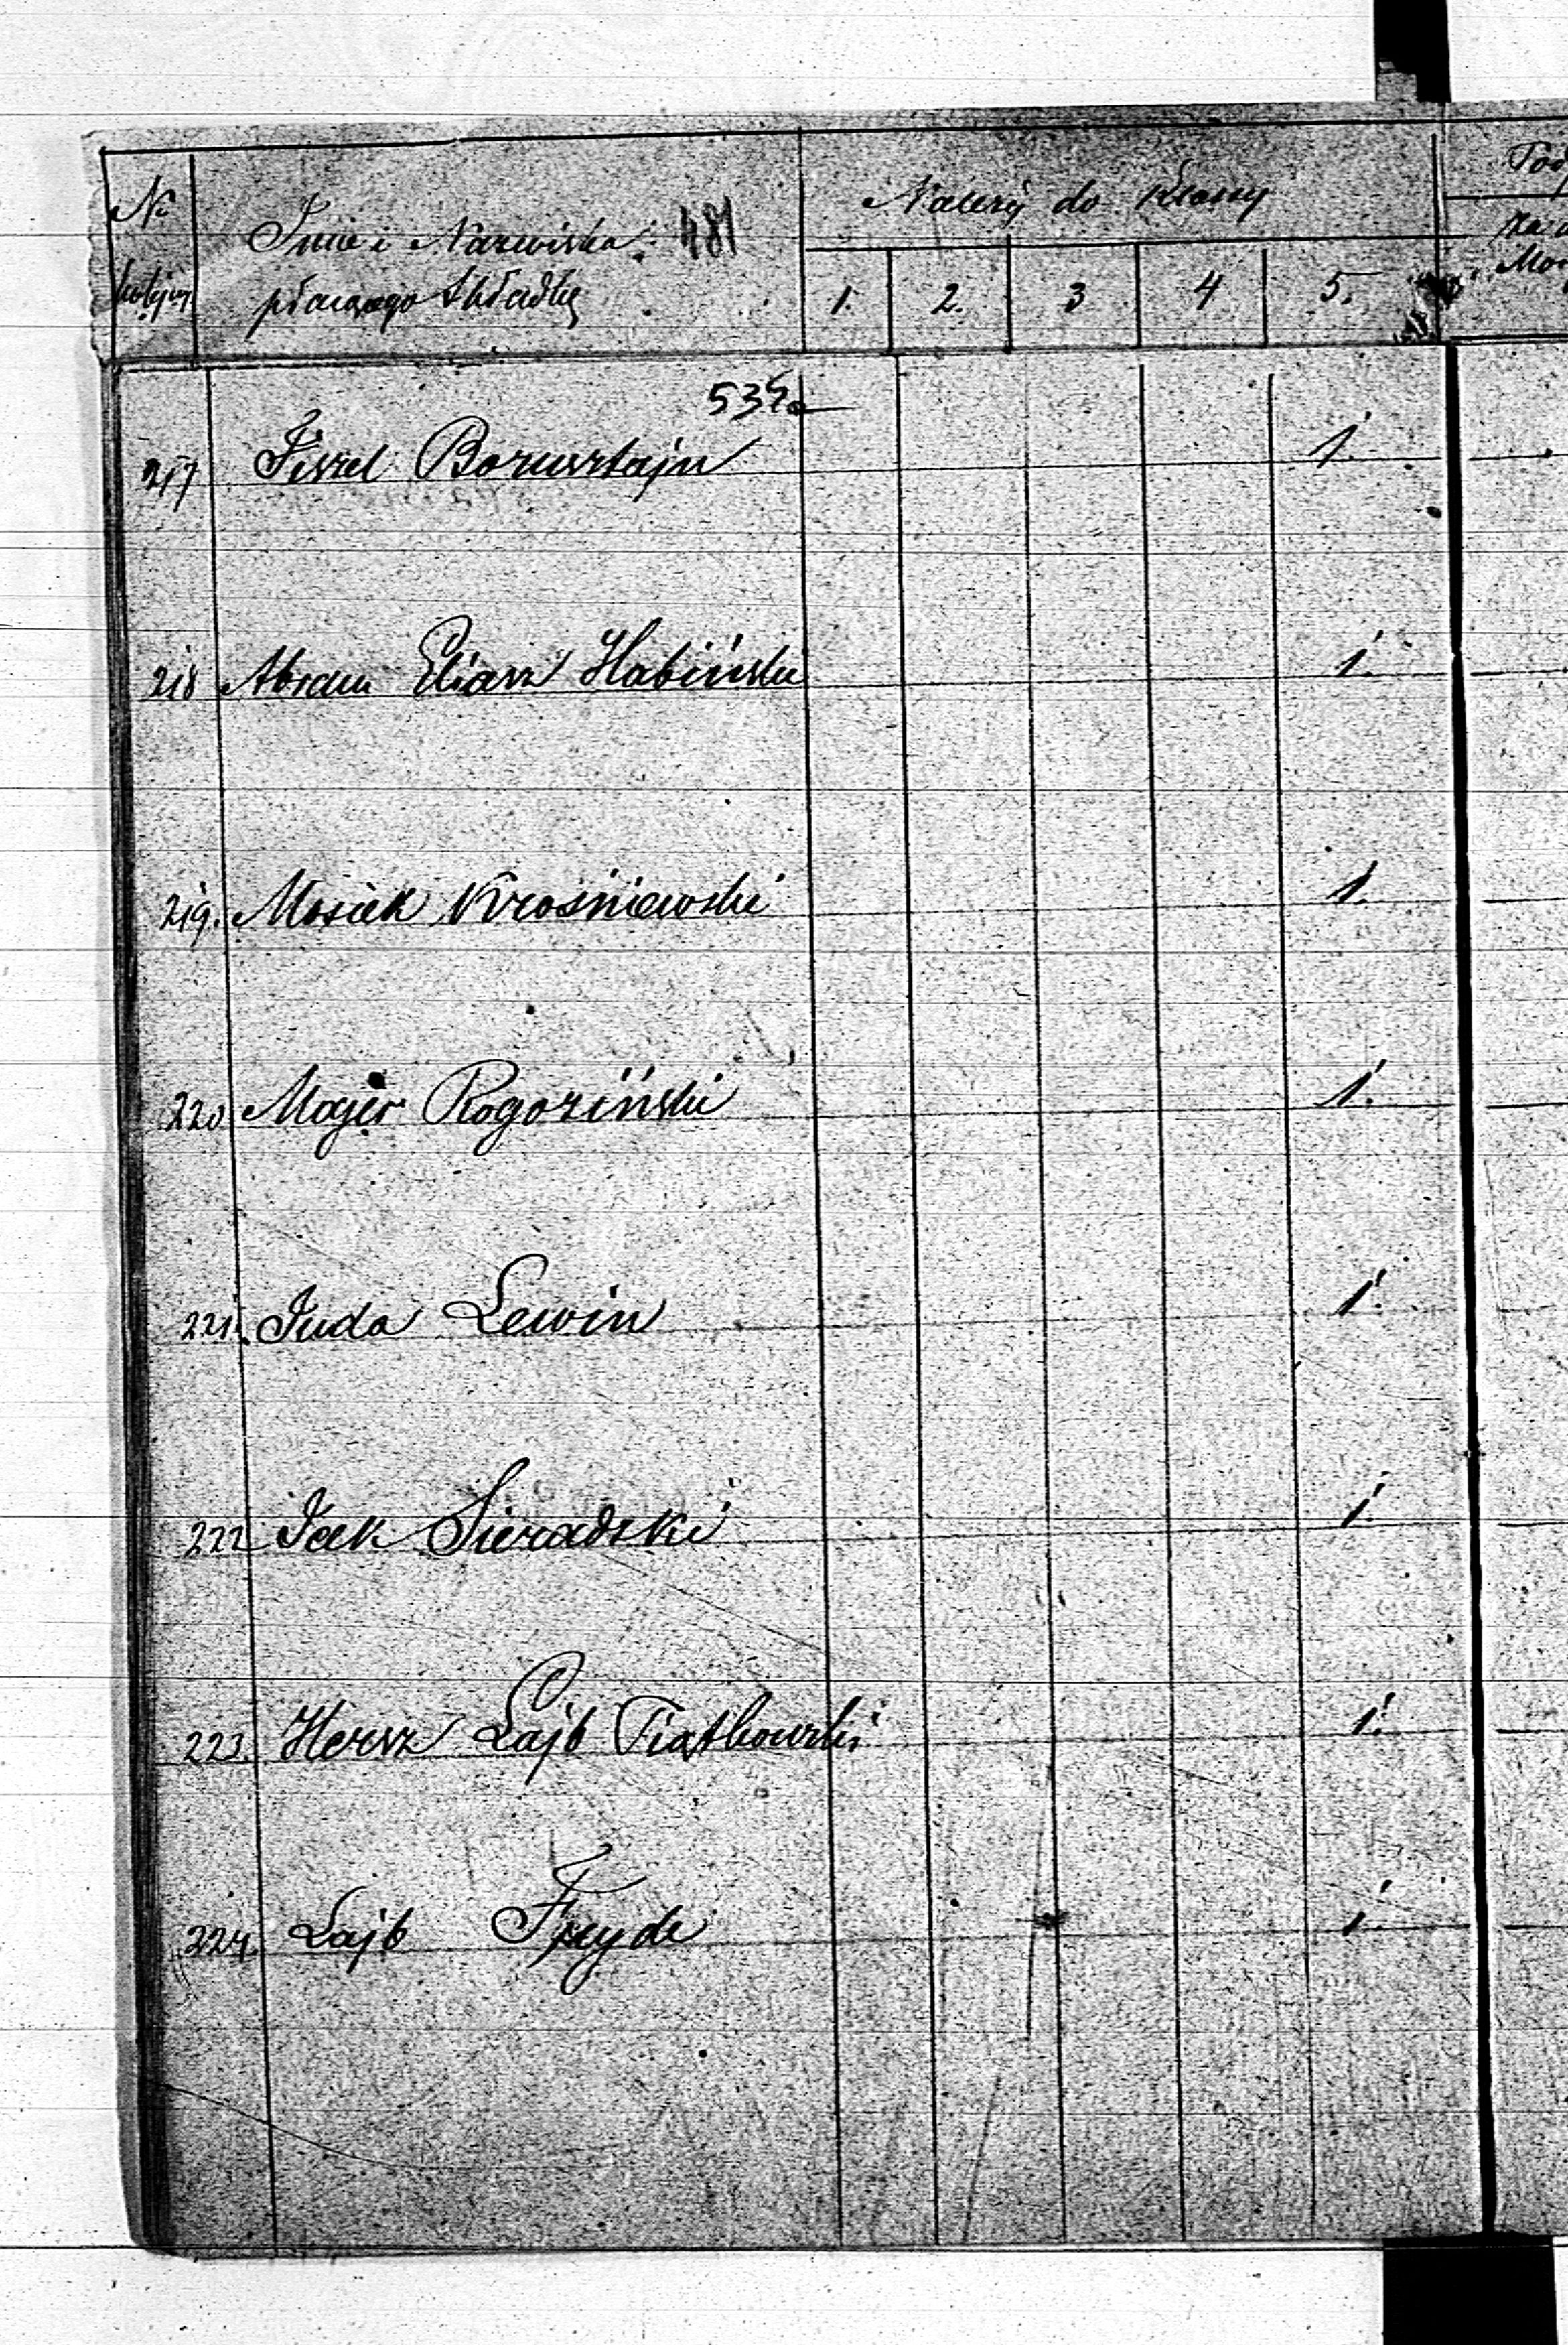 No kolejny
Imie i Nazwiska 481
płacącego Składkę
Należy do Klassy
1. 2. 3 4 5.
535
217 Fiszel Borusztajn 1.
218 Abram Eliasz Habiński 1.
219. Mosiek Krośniewski 1.
220 Majer Rogoziński 1.
221. Juda Lewin 1.
222 Icek Sieradzki 1.
223. Hersz Lajb Piątkowski 1.
224. Lajb Frejde 1.